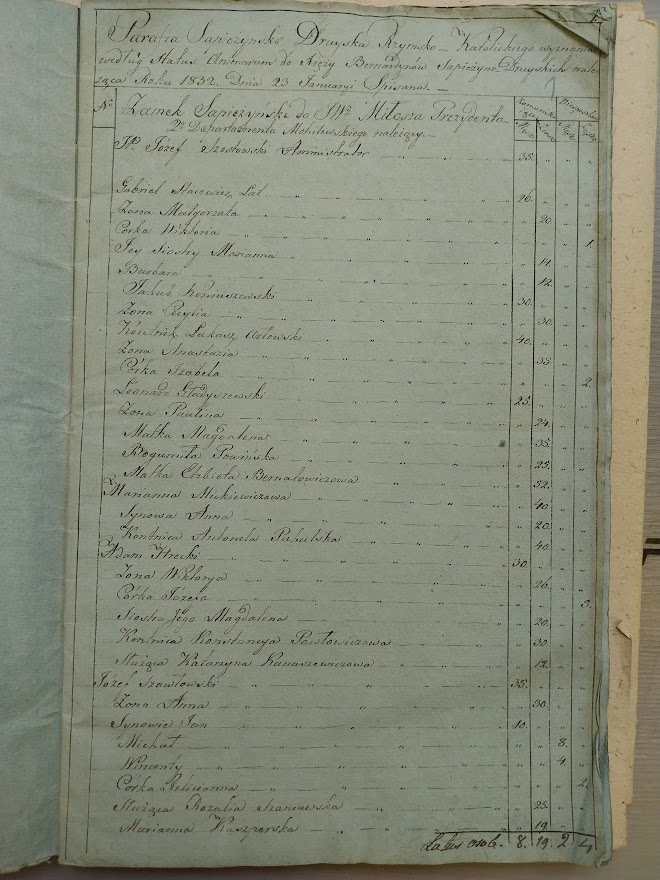 1.
Parafia Sapieżyńsko Drujska Rzymsko-Katolickiego wyznania
według Status Animarum do Xięży Bernardynów Sapieżyno-Drujskich nale-
żąca Roku 1832. Dnia 23 Januaryi Spisana.
No Zamek Sapieżyński do Miłosza Prezydenta
2go Departamentu Mohilewskiego należący.
JP. Józef Administrator 35.
Gabriel Stacewicz Lat 26.
Żona Małgorzata 20.
Córka Wiktoria 1.
Jey Siostry Marianna 14.
Barbara 12.
Jakub 30.
Żona Cecylia 30.
Łukasz Orłowski 40.
Żona Anastazia 38.
Córka Izabela 2.
Leonard Gładyszewski 25.
Żona Paulina 24.
Matka Magdalena 35.
Bogumiła 25.
Matka Elżbieta Bernatowiczowa 52.
Marianna Mickiewiczowa 40.
Synowa Anna 20.
Kontnica Antonela 40.
Adam 30.
Żona Wiktorya 26.
Córka Józefa 3.
Siostra Jego Magdalena 20.
Kontnica Konstancya Pawłowiczowa 30.
Służąca Katarzyna Kanaszewiczowa 12.
Józef Szawłowski 35.
Żona Anna 30.
Synowie Jan 10.
Michał 8.
Wincenty 4.
Córka Felicianna 2.
Służąca Rozalia Szaniawska 25.
Marianna Kasperska 19.
Latus osob. 8. 19. 2 4